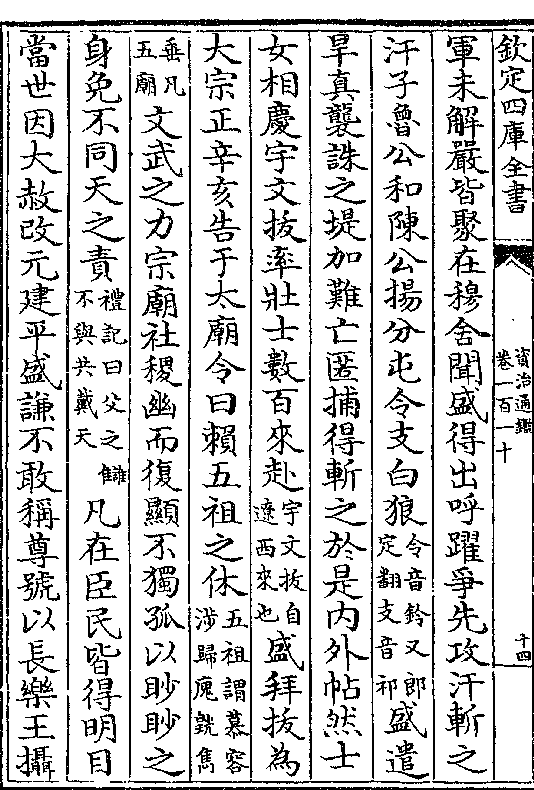 欽定四庫全書
資治通鑑
卷一百一十
十四
軍未解嚴皆聚在穆舍聞盛得出呼躍爭先攻汗斬之
汗子魯公和陳公揚分屯令支白狼令音鈴又郎定翻支音祁盛遣
旱真襲誅之堤加難亡匿捕得斬之於是内外帖然士
女相慶宇文拔率壯士數百來赴宇文拔自遼西來也盛拜拔為
大宗正辛亥告于太廟令曰賴五祖之休五祖謂慕容涉歸廆皝雋
垂凡五廟文武之力宗廟社稷幽而復顯不獨孤以眇眇之
身免不同天之責禮記曰父之讎不與共戴天凡在臣民皆得明目
當世因大赦改元建平盛謙不敢稱尊號以長樂王攝